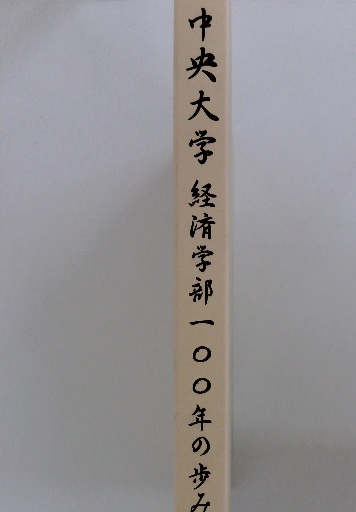 中央大学 経済学部一〇〇年の歩み